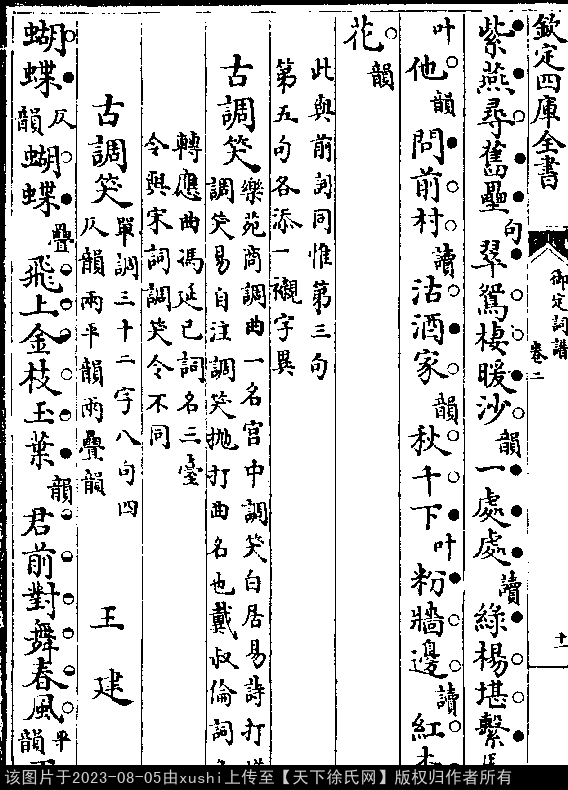 欽定四庫全書
御定詞譜
卷二
十一
紫燕尋舊壘句翠鴛棲暖沙韻一處處讀綠楊堪繫馬
叶他韻問前村讀沽酒家韻秋千下叶粉牆邊讀紅杏
花韻
此與前詞同惟第三句
第五句各添一襯字異
古調笑
樂苑商調曲一名宮中調笑白居易詩打嫌
調笑易自注調笑抛打曲名也戴叔倫詞名
轉應曲馮延巳詞名三臺
令與宋詞調笑令不同
古調笑
單調三十二字八句四
仄韻兩平韻兩疊韻
王建
蝴蝶仄韻蝴蝶疊飛上金枝玉葉韻君前對舞春風平韻
该图片于2023-08-05由xushi上传至【天下徐氏网】版权归作者所有